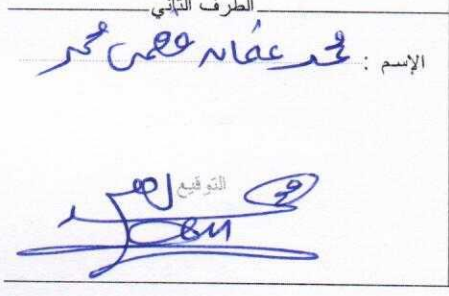 الطرف الثاني
الإسم : محمد عثمان فهمى محمد
التوقيع